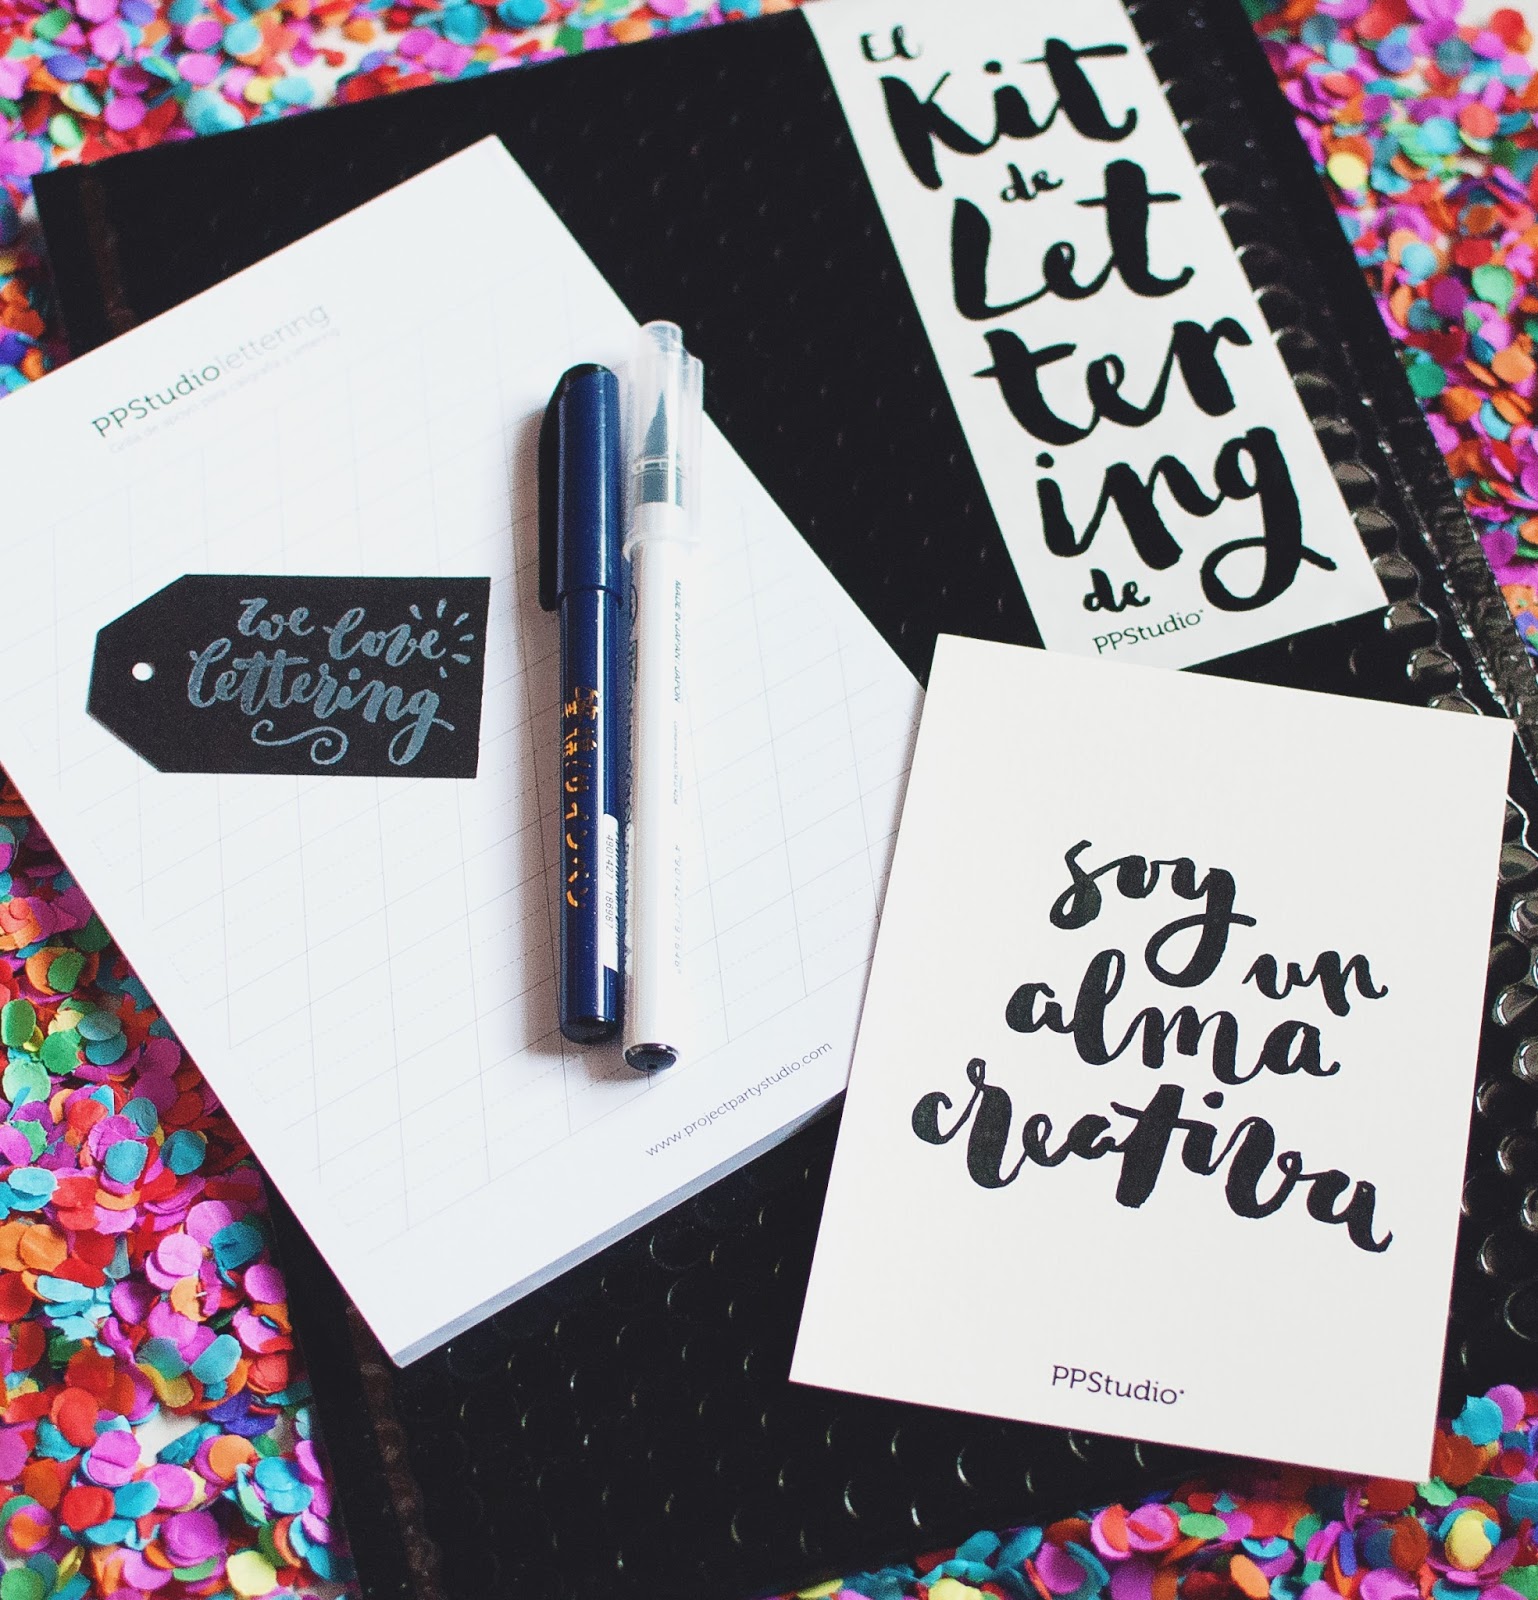 El
Kit
de
Let
ter
ing
de
PPStudio
PPStudiolettering
Grilla de apoyo para caligrafía y lettering
we love
lettering
MADE IN JAPAN
4901427 186987
www.projectpartystudio.com
soy
un
alma
creativa
PPStudio